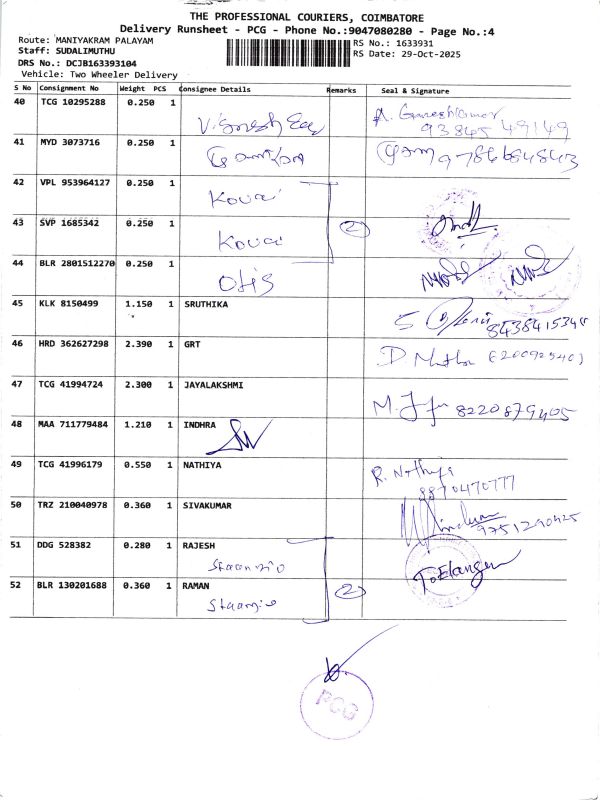 THE PROFESSIONAL COURIERS, COIMBATORE
Delivery Runsheet - PCG - Phone No.:9047080280 - Page No.:4
Route: MANIYAKRAM PALAYAM
RS No.: 1633931
Staff: SUDALIMUTHU
RS Date: 29-Oct-2025
DRS No.: DCJB163393104
Vehicle: Two Wheeler Delivery
S No Consignment No Weight PCS Consignee Details Remarks Seal & Signature
40 TCG 10295288 0.250 1
A. Ganeshkumar
93845 49149
41 MYD 3073716 0.250 1
9786684843
42 VPL 953964127 0.250 1
Kovai
43 SVP 1685342 0.250 1
Kovai
2
44 BLR 2801512270 0.250 1
Otis
45 KLK 8150499 1.150 1 SRUTHIKA
46 HRD 362627298 2.390 1 GRT
47 TCG 41994724 2.300 1 JAYALAKSHMI
8220879405
48 MAA 711779484 1.210 1 INDHRA
49 TCG 41996179 0.550 1 NATHIYA
R. Nathiya
8870470777
50 TRZ 210040978 0.360 1 SIVAKUMAR
9751290425
51 DDG 528382 0.280 1 RAJESH
52 BLR 130201688 0.360 1 RAMAN
2
PCG